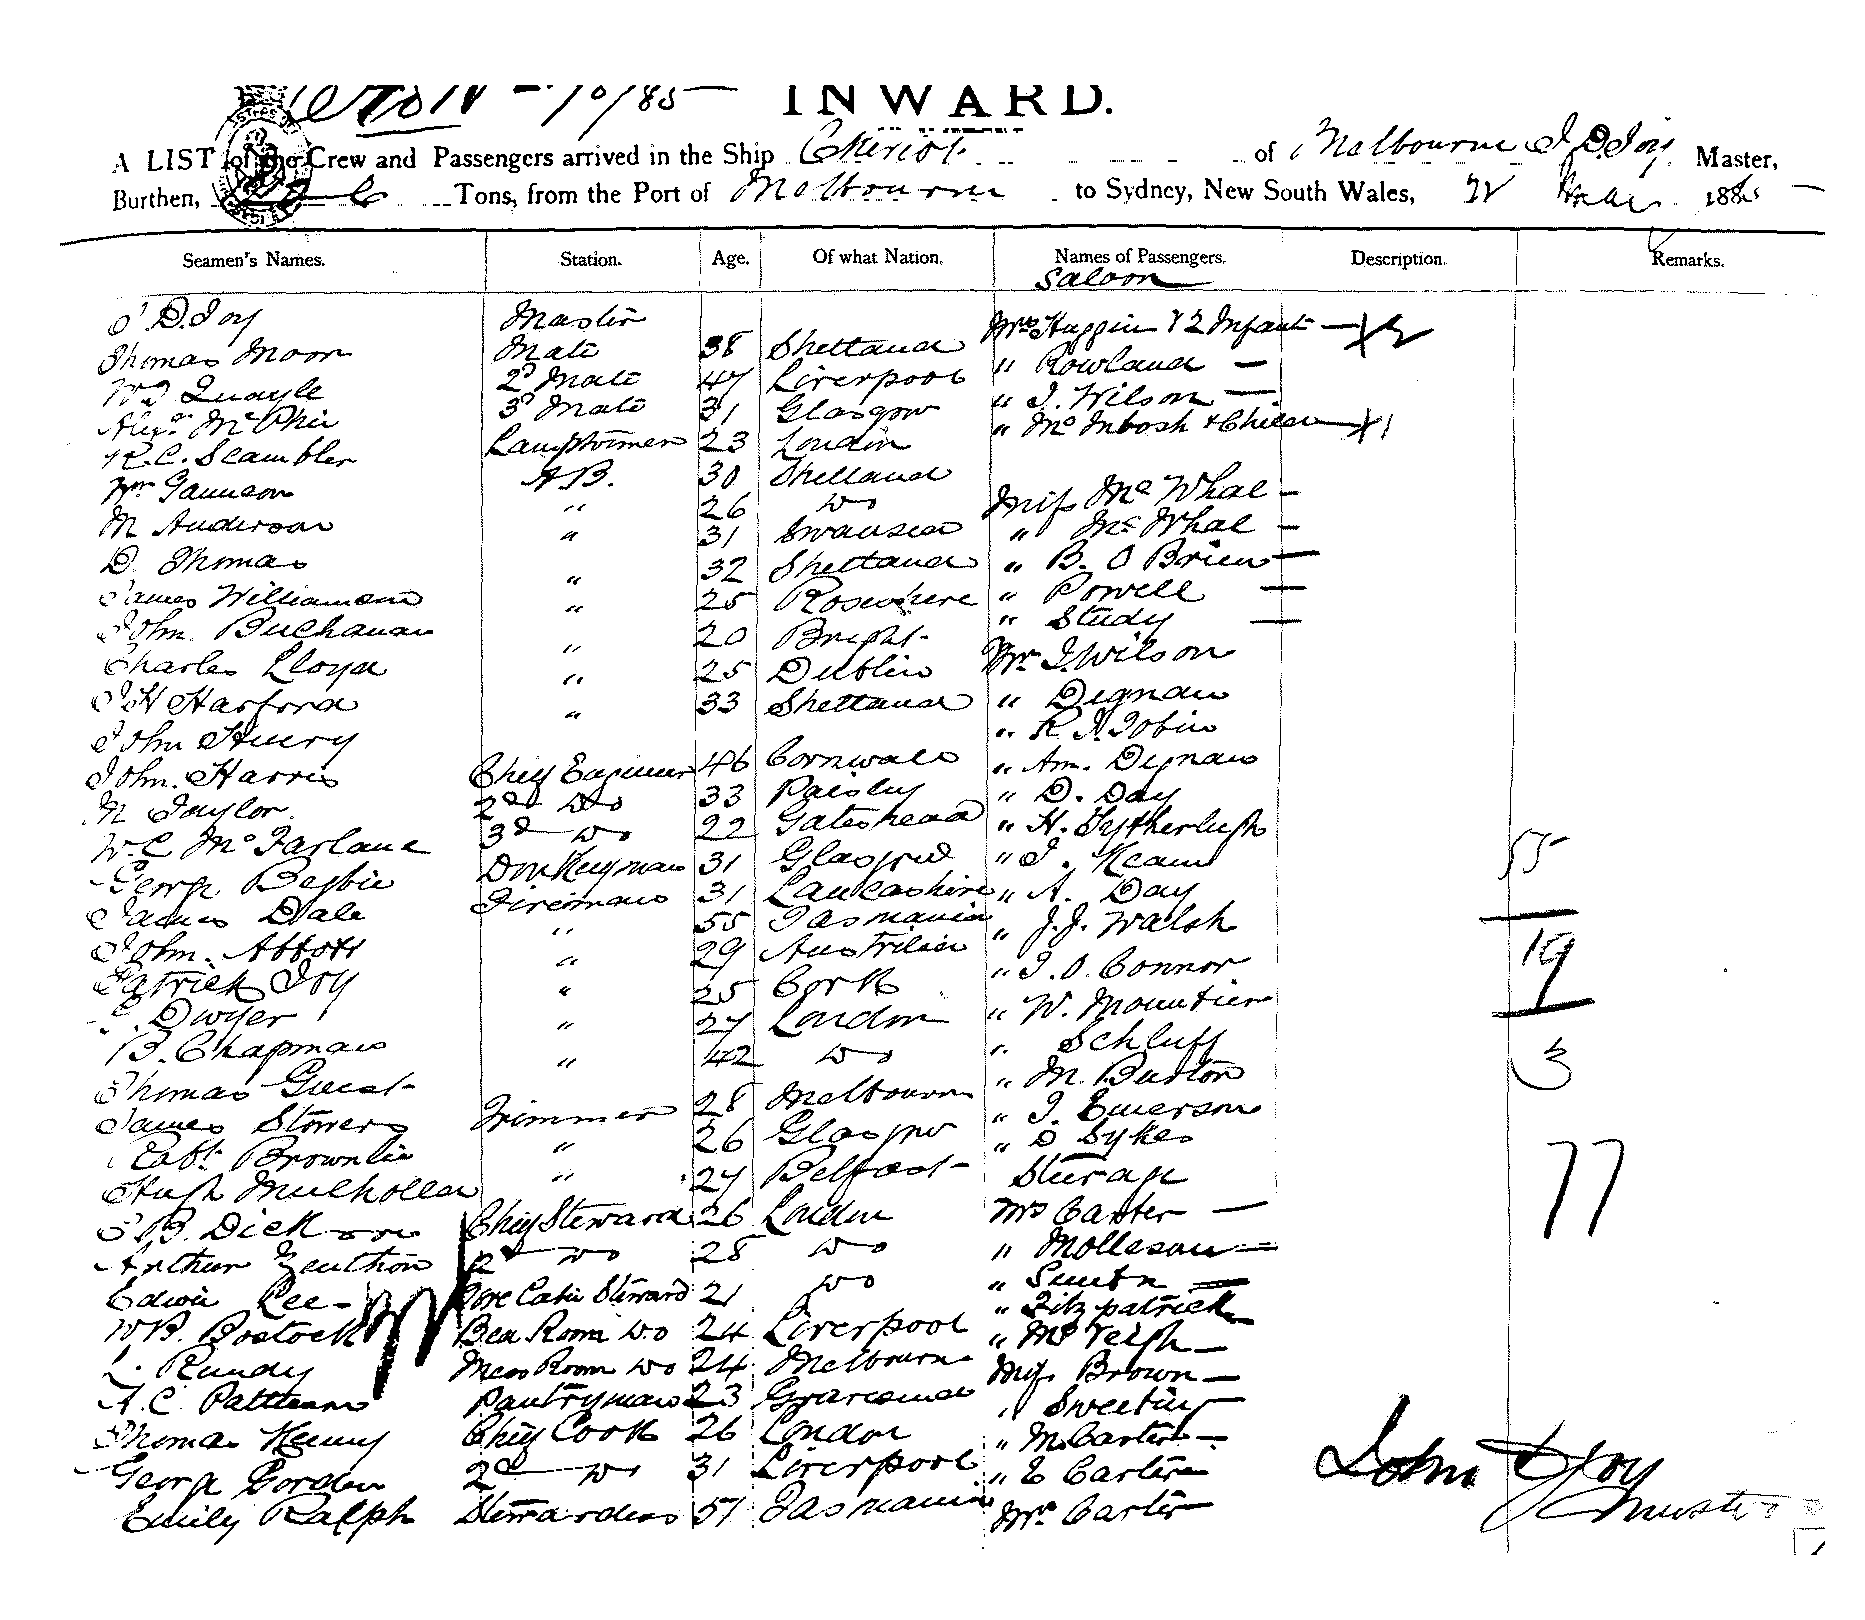 10/85 INWARD.
A LIST of the Crew and Passengers arrived in the Ship Cheviot of Melbourne J D. Joy Master,
Burthen, Tons, from the Port of Melbourne to Sydney, New South Wales, 188
Seamen's Names. Station. Age. Of what Nation. Names of Passengers. Description. Remarks.
Saloon
J D. Joy Master Mrs Huggin & 2 Infants 2
Thomas Moor Mate 38 Shetland " Rowland
Wm Quayle 2d Mate 47 Liverpool " J. Wilson
Alexr McPhie 3d Mate 31 Glasgow " McIntosh & Child 1
R. C. Scambler Lamptrimmer 23 London
Wm Jamieson A B. 30 Shetland Miss McWhae
M Anderson " 26 Do " McWhae
D. Thomas " 31 Swansea " B. O Brien
James Williamson " 32 Shetland " Powell
John Buchanan " 25 Rosshire " Study
Charles Lloyd " 20 Bright Mr J. Wilson
J H Harford " 25 Dublin " Dignan
John Henry " 33 Shetland " R. J. Tobin
John Harris Chief Engineer 46 Cornwall " Am. Dignan
M Taylor 2nd Do 33 Paisley " D. Day
W. C McFarlane 3d Do 22 Gateshead " H.
George Begbie Donkeyman 31 Glasgow " J. Keam
James Dale Fireman 31 Lancashire " A. Day
John Abbott " 55 Tasmania " J. J. Walsh
Patrick Joy " 29 Australia " J. O. Connor
Dwyer " 25 Cork " W. Mountier
B. Chapman " 27 London " Schluff
Thomas Guest " 42 Do " M. Burton
James Stowers Trimmer 28 Melbourne " J. Emerson
Robt Brownlie " 26 Glasgow " D Sykes
Hugh Mulholland " 27 Belfast Steerage
B. Dickson Chief Steward 26 London Mrs Carter
Arthur Zeuthon 2d Do 28 Do " Mollesan
Edwin Lee Fore Cabin Steward 21 Do " Smith
W B. Bostock Bed Room Do 24 Liverpool " Fitzpatrick
Rundy Mess Room Do 24 Melbourne " McVeigh
A. C. Patterson Pantryman 23 Gravesend Miss Brown
Thomas Kenny Chief Cook 26 London " Sweeting
George Gordon 2d Do 31 Liverpool " M. Carter
Emily Ralph Stewardess 57 Tasmania " E Carter
Mr Carter
55
19
3
77
John D Joy
Master